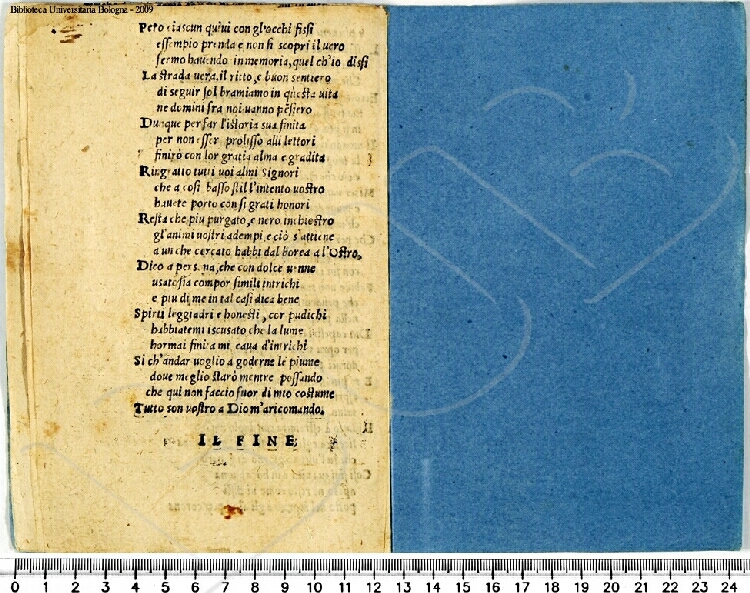 Biblioteca Universitaria Bologna - 2009
Pero ciascun quiui con gl'occhi fissi
essempio prenda e non si scopri il uero
fermo hauendo in memoria, quel ch'io dissi
La strada uera, il ritto, e buon sentiero
di seguir sol bramiamo in questa uita
ne domini fra noi uanno pẽsiero
Dunque per far l'istoria sua finita
per non esser prolisso alli lettori
finirò con lor gratia alma e gradita
Ringratio tutti uoi almi Signori
che a cosi basso stil l'intento uostro
hauete porto con si grati honori
Resta che piu purgato, e nero inchiostro
gl'animi uostri adempi, e ciò s'attiene
a un che cercato habbi dal borea a l'Ostro,
Dico a persona, che con dolce uenne
usato sia compor simili intrichi
e piu di me in tal casi dica bene
Spirti leggiadri e honesti, cor pudichi
habbiatemi iscusato che la lume
hormai finita mi caua d'intrichi
Si ch'andar uoglio a goderne le piume
doue meglio starò mentre possando
che qui non faccio fuor di mio costume
Tutto son uostro a Dio m'aricomando.
IL FINE
0 1 2 3 4 5 6 7 8 9 10 11 12 13 14 15 16 17 18 19 20 21 22 23 24